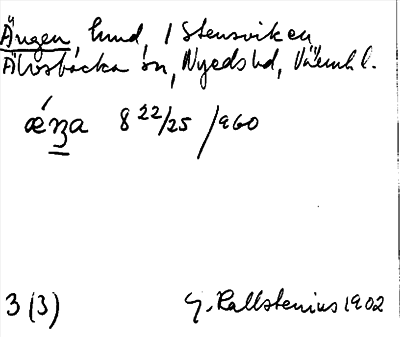 Ängen, lund, / Stensviken
Älvsbacka sn, Nyeds hd, Värml l.
8 22/25 /960
3 (3) G. Kallstenius 1902